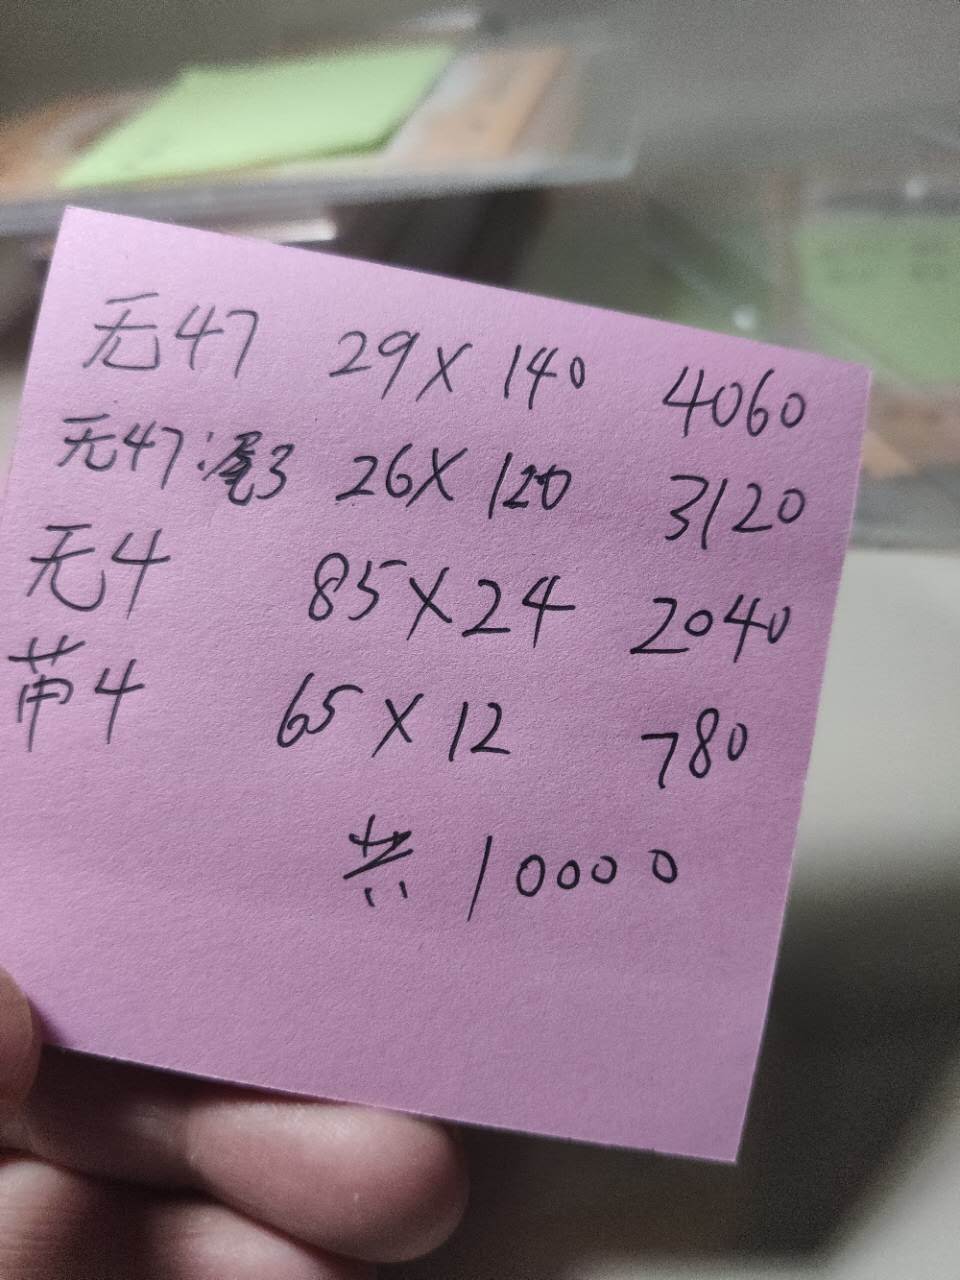 无47 29X140 4060
无47:尾3 26X120 3120
无4 85X24 2040
带4 65X12 780
共 10000